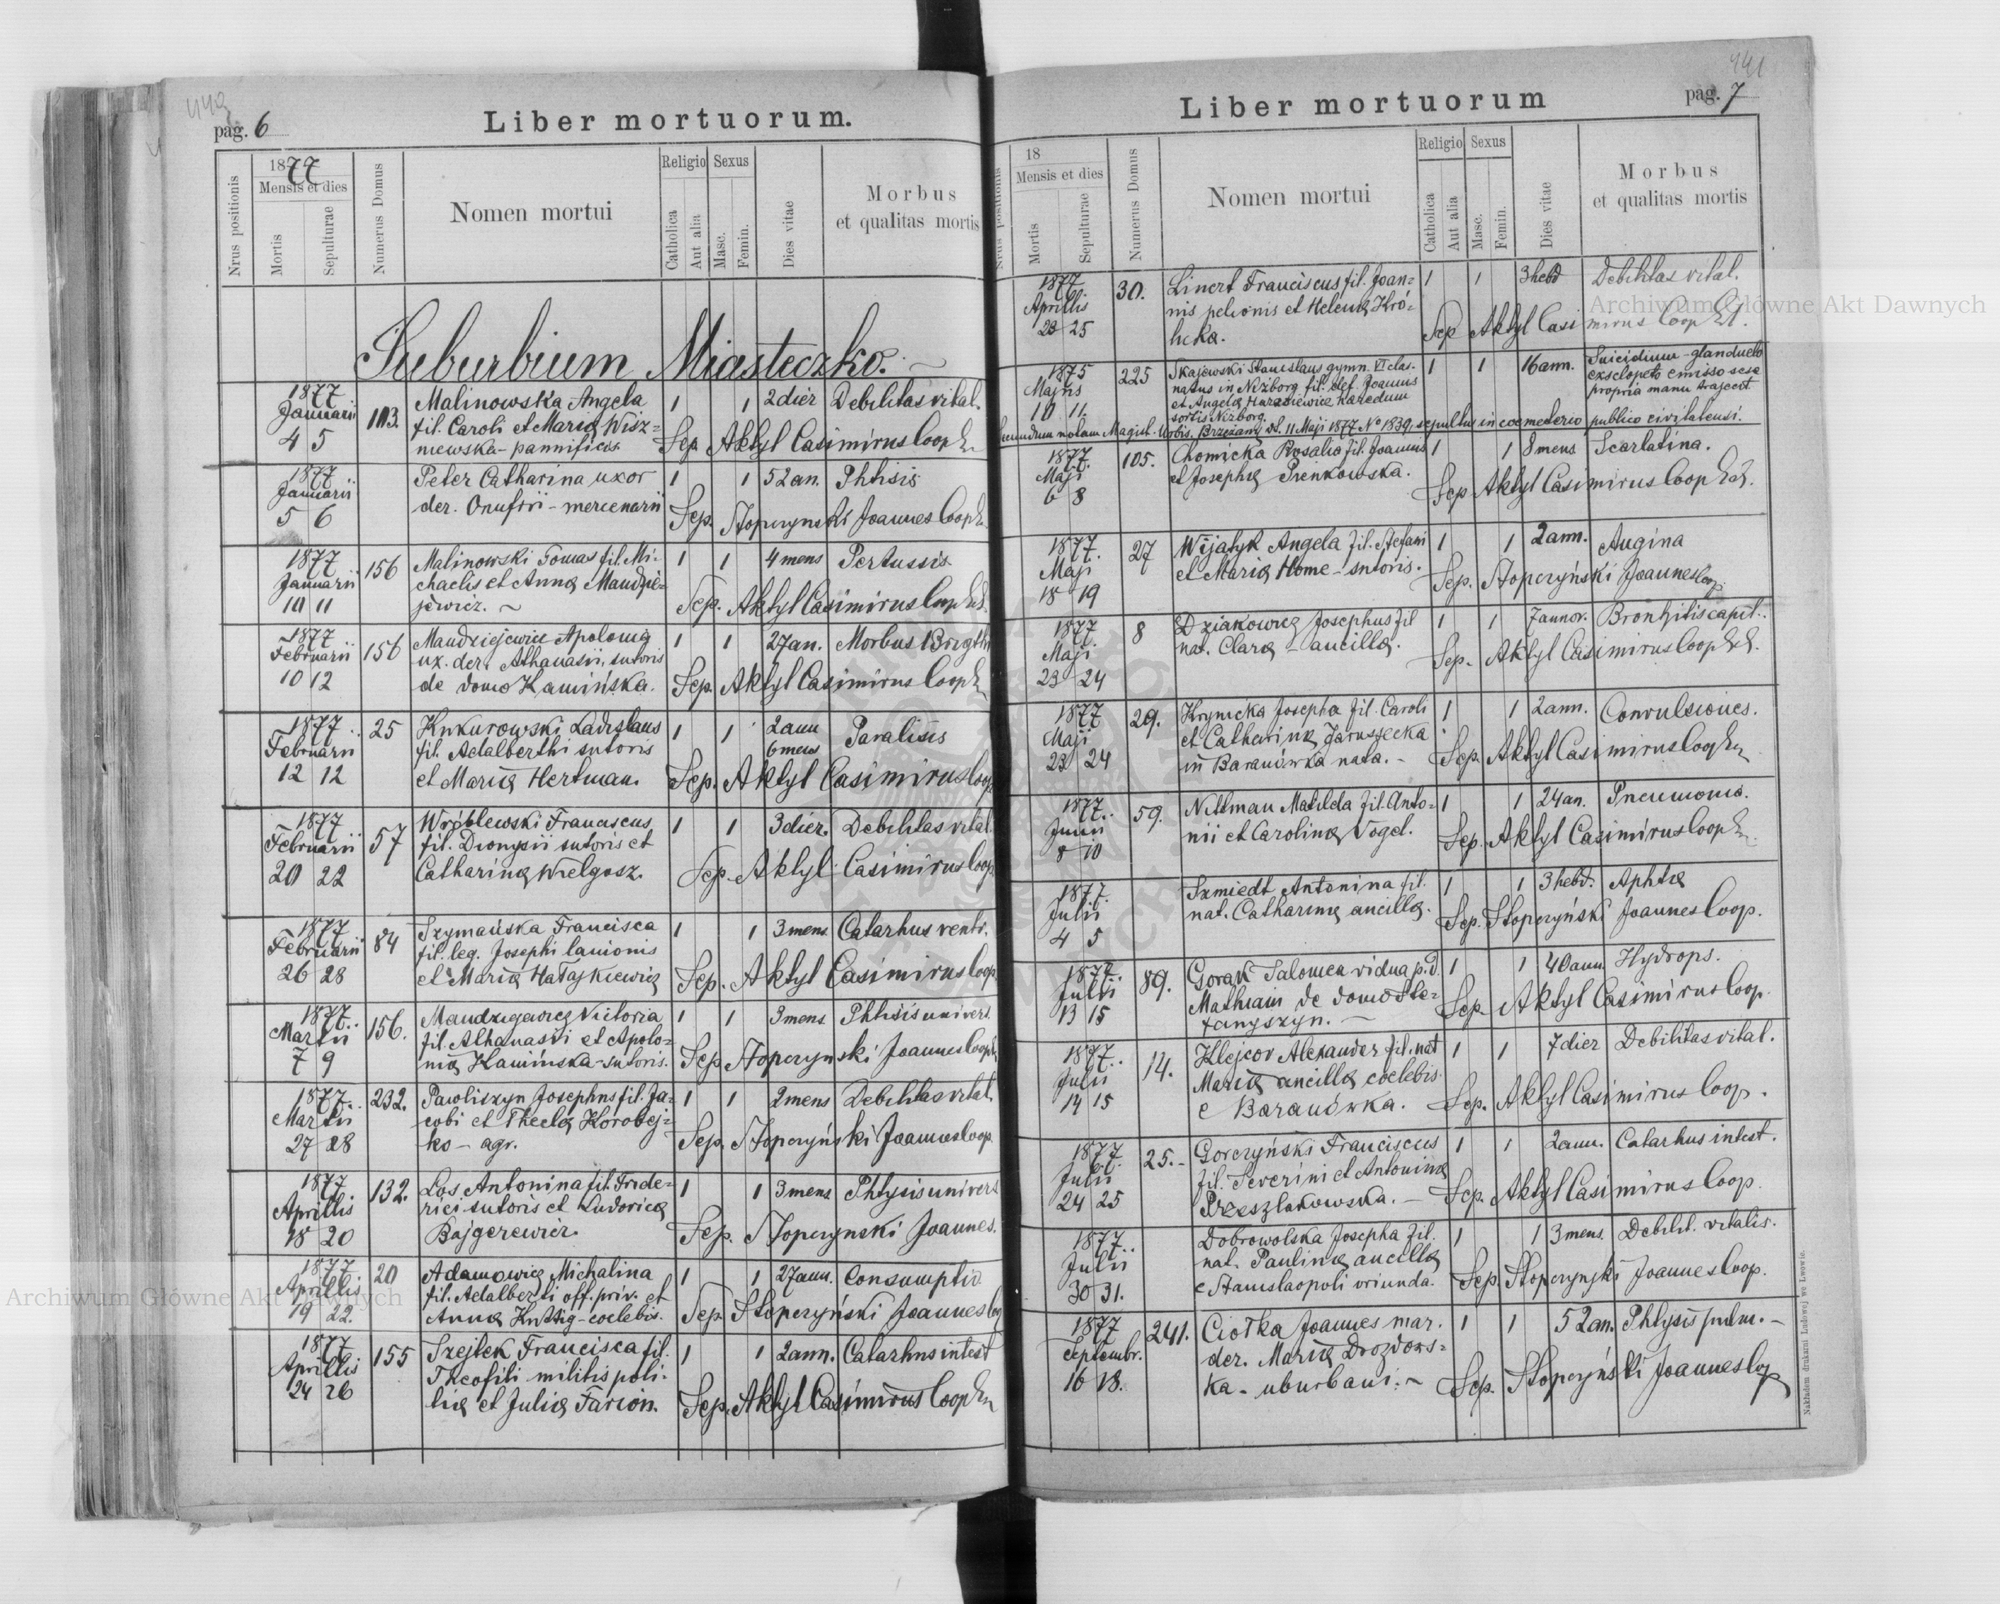 440
pag. 6
Liber mortuorum.
Nrus positionis
1877
Mensis et dies
Mortis
Sepulturae
Numerus Domus
Nomen mortui
Religio
Catholica
Aut alia
Sexus
Masc.
Femin.
Dies vitae
Morbus
et qualitas mortis
Suburbium Miasteczko.
1877
Januarii
4 5
103.
Malinowska Angela
fil. Caroli et Maria Wisz=
niewska - pannificis
1 1 2 dier Debilitas vital.
Sep. Aktyl Casimirus Coop
1877
Januarii
5 6
Peter Catharina uxor
der. Onufrii - mercenarii
1 1 52 an. Phtisis
Sep. Stopczynski Joannes Coop
1877
Januarii
10 11
156
Malinowski Tomas fil. Mi-
chaelis et Anna Mandzie-
jewicz. ~
1 1 4 mens Pertussis
Sep. Aktyl Casimirus Coop
1877
Februarii
10 12
156
Mandziejewicz Apolonia
ux. der. Athanasii, sutoris
de domo Kamińska.
1 1 27 an. Morbus Brigthi
Sep. Aktyl Casimirus Coop
1877
Februarii
12 12
25
Kukurowski Ladislaus
fil. Adalberthi sutoris
et Maria Hertman.
1 1 2 ann
6 mens
Paralisis
Sep. Aktyl Casimirus Coop
1877
Februarii
20 22
57
Wróblewski Franciscus
fil. Dionysii sutoris et
Catharina Wielgosz.
1 1 3 dier. Debilitas vital
Sep. Aktyl Casimirus Coop
1877
Februarii
26 28
84
Szymańska Francisca
fil. leg. Josephi lanionis
et Maria Hatajkiewicz
1 1 3 mens Catarhus ventr.
Sep. Aktyl Casimirus Coop
1877
Martii
7 9
156.
Victoria
fil. Athanasii et Apolo=
nia Kamińska - sutoris.
1 1 3 mens. Phtisis univers
Sep. Stopczynski Joannes Coop
1877
Martii
27 28
232.
Pawliszyn Josephus fil. Ja=
cobi et Thecla Korobej-
ko - agr.
1 1 2 mens Debilitas vital.
Sep. Stopczyński Joannes Coop.
1877
Aprilis
18 20
132.
Los Antonina fil. Fride=
rici sutoris et Ludovica
Bajgerewicz
1 1 3 mens Phtysis univers
Sep. Stopczynski Joannes.
1877
Aprilis
19 22.
20
Adamowicz Michalina
fil. Adalberti off. priv. et
Anna - coelebis.
1 1 27 ann. Consumptio
Sep. Stopczyński Joannes
1877
Aprilis
24 26
155
Szejtek Francisca fil.
Theofili militis poli-
tia et Julia Farion.
1 1 2 ann. Catarhus intest
Sep. Aktyl Casimirus Coop
441
pag. 7
Liber mortuorum
Nrus positionis
18
Mensis et dies
Mortis
Sepulturae
Numerus Domus
Nomen mortui
Religio
Catholica
Aut alia
Sexus
Masc.
Femin.
Dies vitae
Morbus
et qualitas mortis
1877
Aprilis
23 25
30.
Linert Franciscus fil. Joan=
nis pelionis et Helena Kró-
licka.
1 1 3 hebd Debilitas vital.
Sep Aktyl Casimirus Coop
1875
Majus
10 11
225
Skajewski Stanislaus gymn. VI clas.
natus in Niżborg fil. def. Joannis
et Angela haredum
sortis Niżborg.
1 1 16 ann. Suicidium - glandula
exsclopeto emisso sese
propria manu trajecit
secundum notam Magist. Urbis. Brzeżany dt. 11 Maji 1877 No 1839. sepultus in coemeterio publico civitatensi.
1877
Maji
6 8
105.
Chomicka Rosalia fil. Joannis
et Josepha Pienkowska.
1 1 8 mens Scarlatina.
Sep. Aktyl Casimirus Coop
1877.
Maji
18 19
27
Wijatyk Angela fil. Stefani
et Maria Home - sutoris.
1 1 2 ann. Angina
Sep. Stopczyński Joannes Coop
1877
Maji
23 24
8
Dziakowicz Josephus fil
nat. Clara - ancilla.
1 1 7 annor. Bronhitis capil.
Sep. Aktyl Casimirus Coop
1877
Maji
23 24
29.
Krynicka Josepha fil. Caroli
et Catharina Jaruszecka
in Baranówka nata. -
1 1 2 ann. Convulsiones.
Sep. Aktyl Casimirus Coop
1877.
Junii
8 10
59.
Nittman Matilda fil. Anto=
nii et Carolina Vogel.
1 1 24 an. Pneumonia.
Sep. Aktyl Casimirus Coop
1877.
Julii
4 5
Szmiedt Antonina fil.
nat. Catharina ancilla.
1 1 3 hebd. Aphta
Sep. Stopczyński Joannes Coop.
1877.
Julii
13 15
89.
Gorak Salomea vidua p. d.
Mathiam de domo Ste=
fanyszyn. ~
1 1 40 ann. Hydrops.
Sep. Aktyl Casimirus Coop
1877.
Julii
14 15
14.
Klejcor Alexander fil. nat
Maria ancilla coelebis.
e Baranówka.
1 1 7 dier Debilitas vital.
Sep. Aktyl Casimirus Coop.
1877
Julii
24 25
25.-
Gorczyński Franciscus
fil. Severini et Antonina
Przeszlakowska. -
1 1 2 ann. Catarhus intest.
Sep. Aktyl Casimirus Coop.
1877.
Julii
30 31.
Dobrowolska Josepha fil.
nat. Paulina ancilla
e Stanislaopoli oriunda.
1 1 3 mens. Debilit. vitalis.
Sep. Stopczynski Joannes Coop.
1877
Septembr.
16 18.
241.
Ciotka Joannes mar.
der. Maria Drozdows=
ka - uburbani. ~
1 1 52 an. Phtysis pulm. -
Sep. Stopczyński Joannes Cop
Nakładem drukarni Ludowej we Lwowie.
Archiwum Główne Akt Dawnych
Archiwum Główne Akt Dawnych